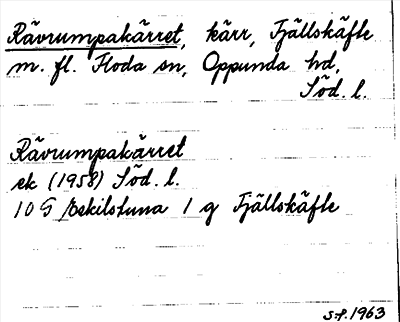 Rävrumpakärret, kärr, Fjällskäfte
m. fl. Floda sn, Oppunda hd,
Söd. l.
Rävrumpakärret
ek (1958) Söd. l.
10 G Eskilstuna 1 g Fjällskäfte
S.P. 1963